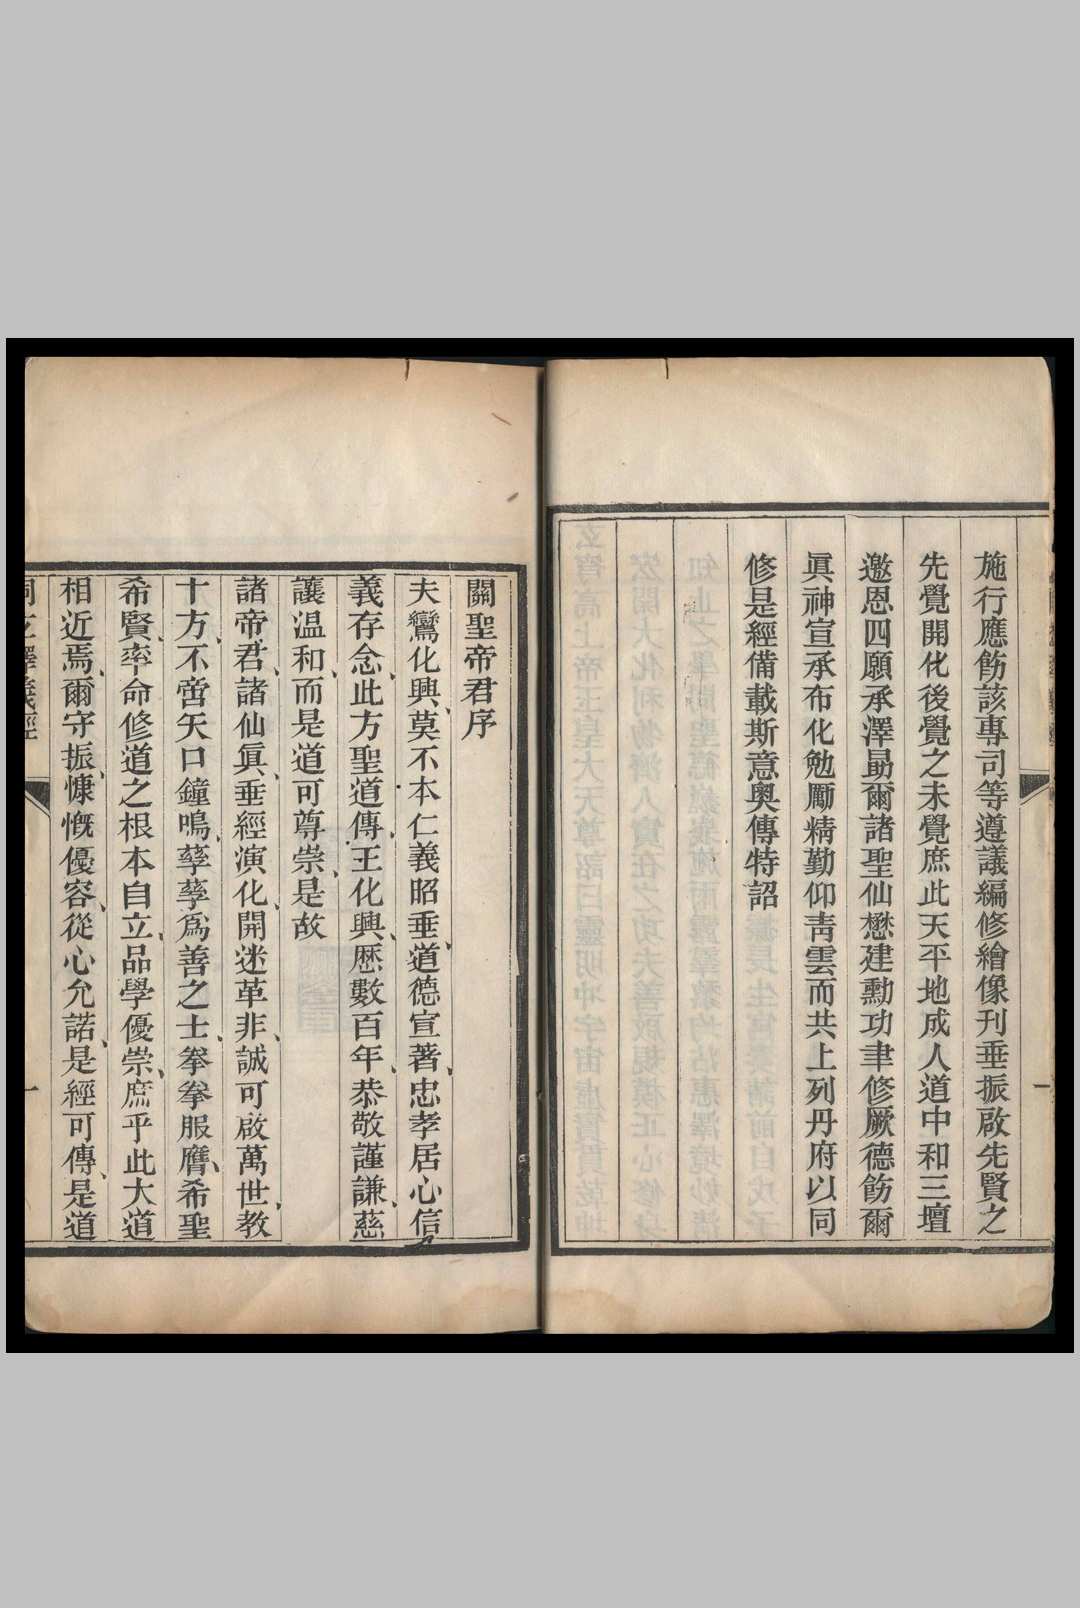 施行應飭該專司等遵議編修繪像刊垂振啟先賢之
先覺開化後覺之未覺庶此天平地成人道中和三壇
邀恩四願承澤勗爾諸聖仙懋建勳功聿修厥德飭爾
眞神宣承布化勉勵精勤仰靑雲而共上列丹府以同
修是經備載斯意奧傳特詔
一
關聖帝君序
夫鸞化興、莫不本仁義昭垂、道德宣著、忠孝居心信
義存念、此方聖道傳、王化興、歷數百年、恭敬謹謙、慈
讓溫和、而是道可尊崇、是故
諸帝君、諸仙眞、垂經演化、開迷革非、誠可啟萬世、教
十方、不啻矢口鐘鳴、孳孳爲善之士、拳拳服膺、希聖
希賢、率命修道之根本自立、品學優崇、庶乎此大道
相近焉、爾守振、慷慨優容、從心允諾、是經可傳、是道
經
一